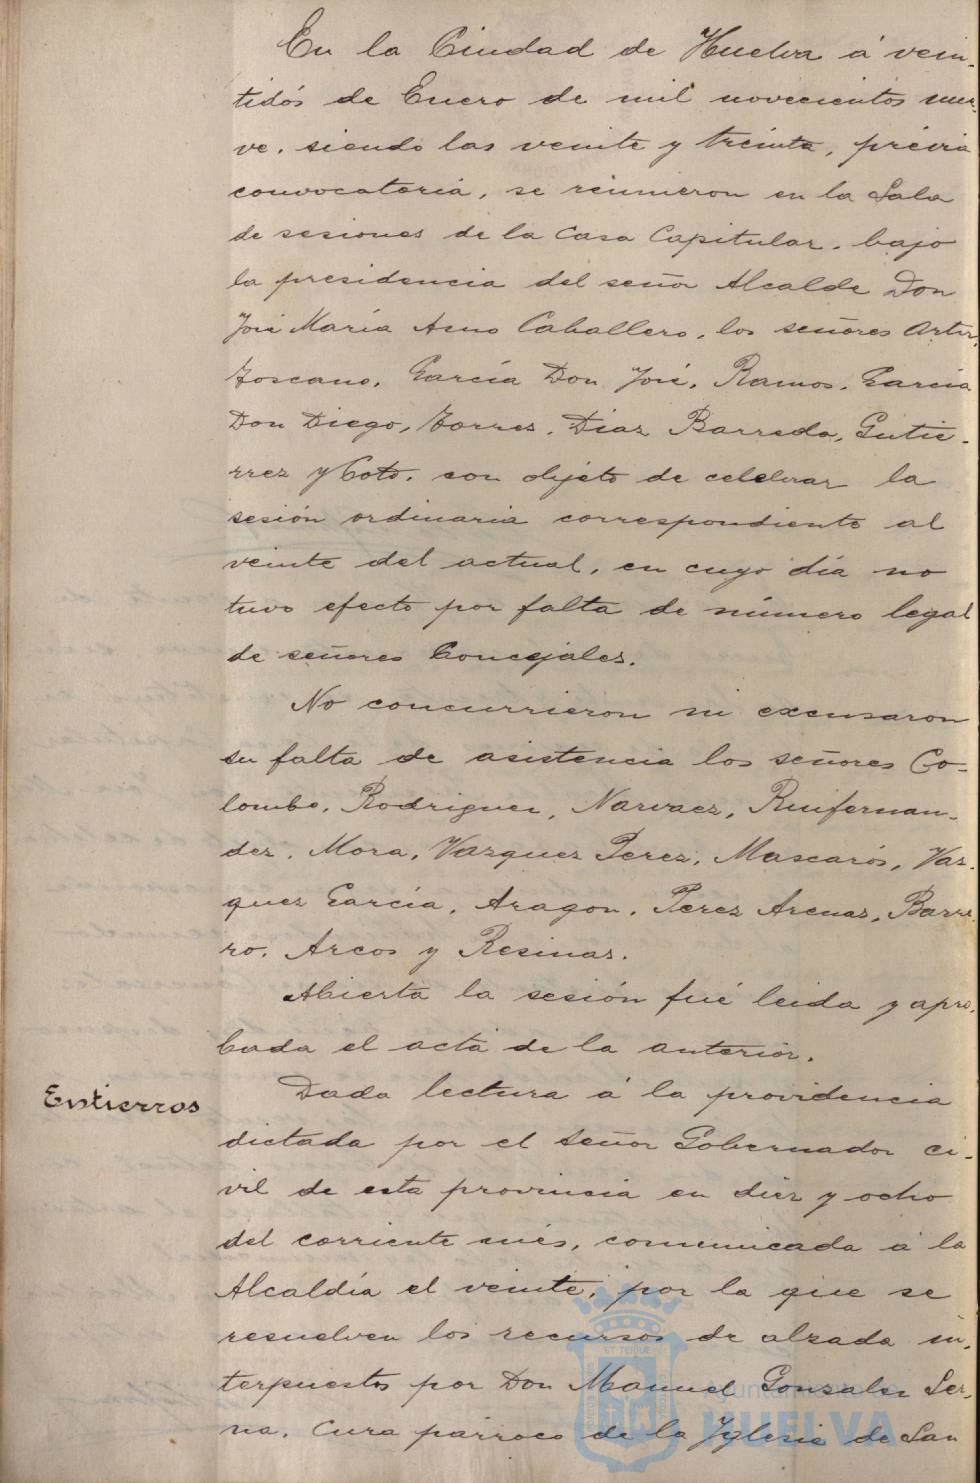 En la Ciudad de Huelva á vein-
tidós de Enero de mil novecientos nue-
ve, siendo las veinte y treinta, prévia
convocatoria, se reunieron en la Sala
de sesiones de la Casa Capitular, bajo
la presidencia del señor Alcalde Don
José María Amo Caballero, los señores
Toscano, García Don José, Ramos, García
Don Diego, Torres, Diaz Barreda, Gutie-
rrez y Coto, con objeto de celebrar la
sesión ordinaria correspondiente al
veinte del actual, en cuyo día no
tuvo efecto por falta de número legal
de señores Concejales.
No concurrieron ni excusaron
su falta de asistencia los señores Co-
lombo, Rodriguez, Narvaez, Ruifernan-
dez, Mora, Vazquez Perez, Mascarós, Vaz-
quez García, Aragon, Perez Arenas, Barre-
ro, Arcos y Resinas.
Abierta la sesión fué leida y apro-
bada el acta de la anterior.
Entierros
Dada lectura á la providencia
dictada por el Señor Gobernador ci-
vil de esta provincia en diez y ocho
del corriente més, comunicada á la
Alcaldía el veinte, por la que se
resuelven los recursos de alzada in-
terpuestos por Don Manuel Gonzalez Ser-
na, Cura párroco de la Yglesia de San
Ayuntamiento de
HUELVA